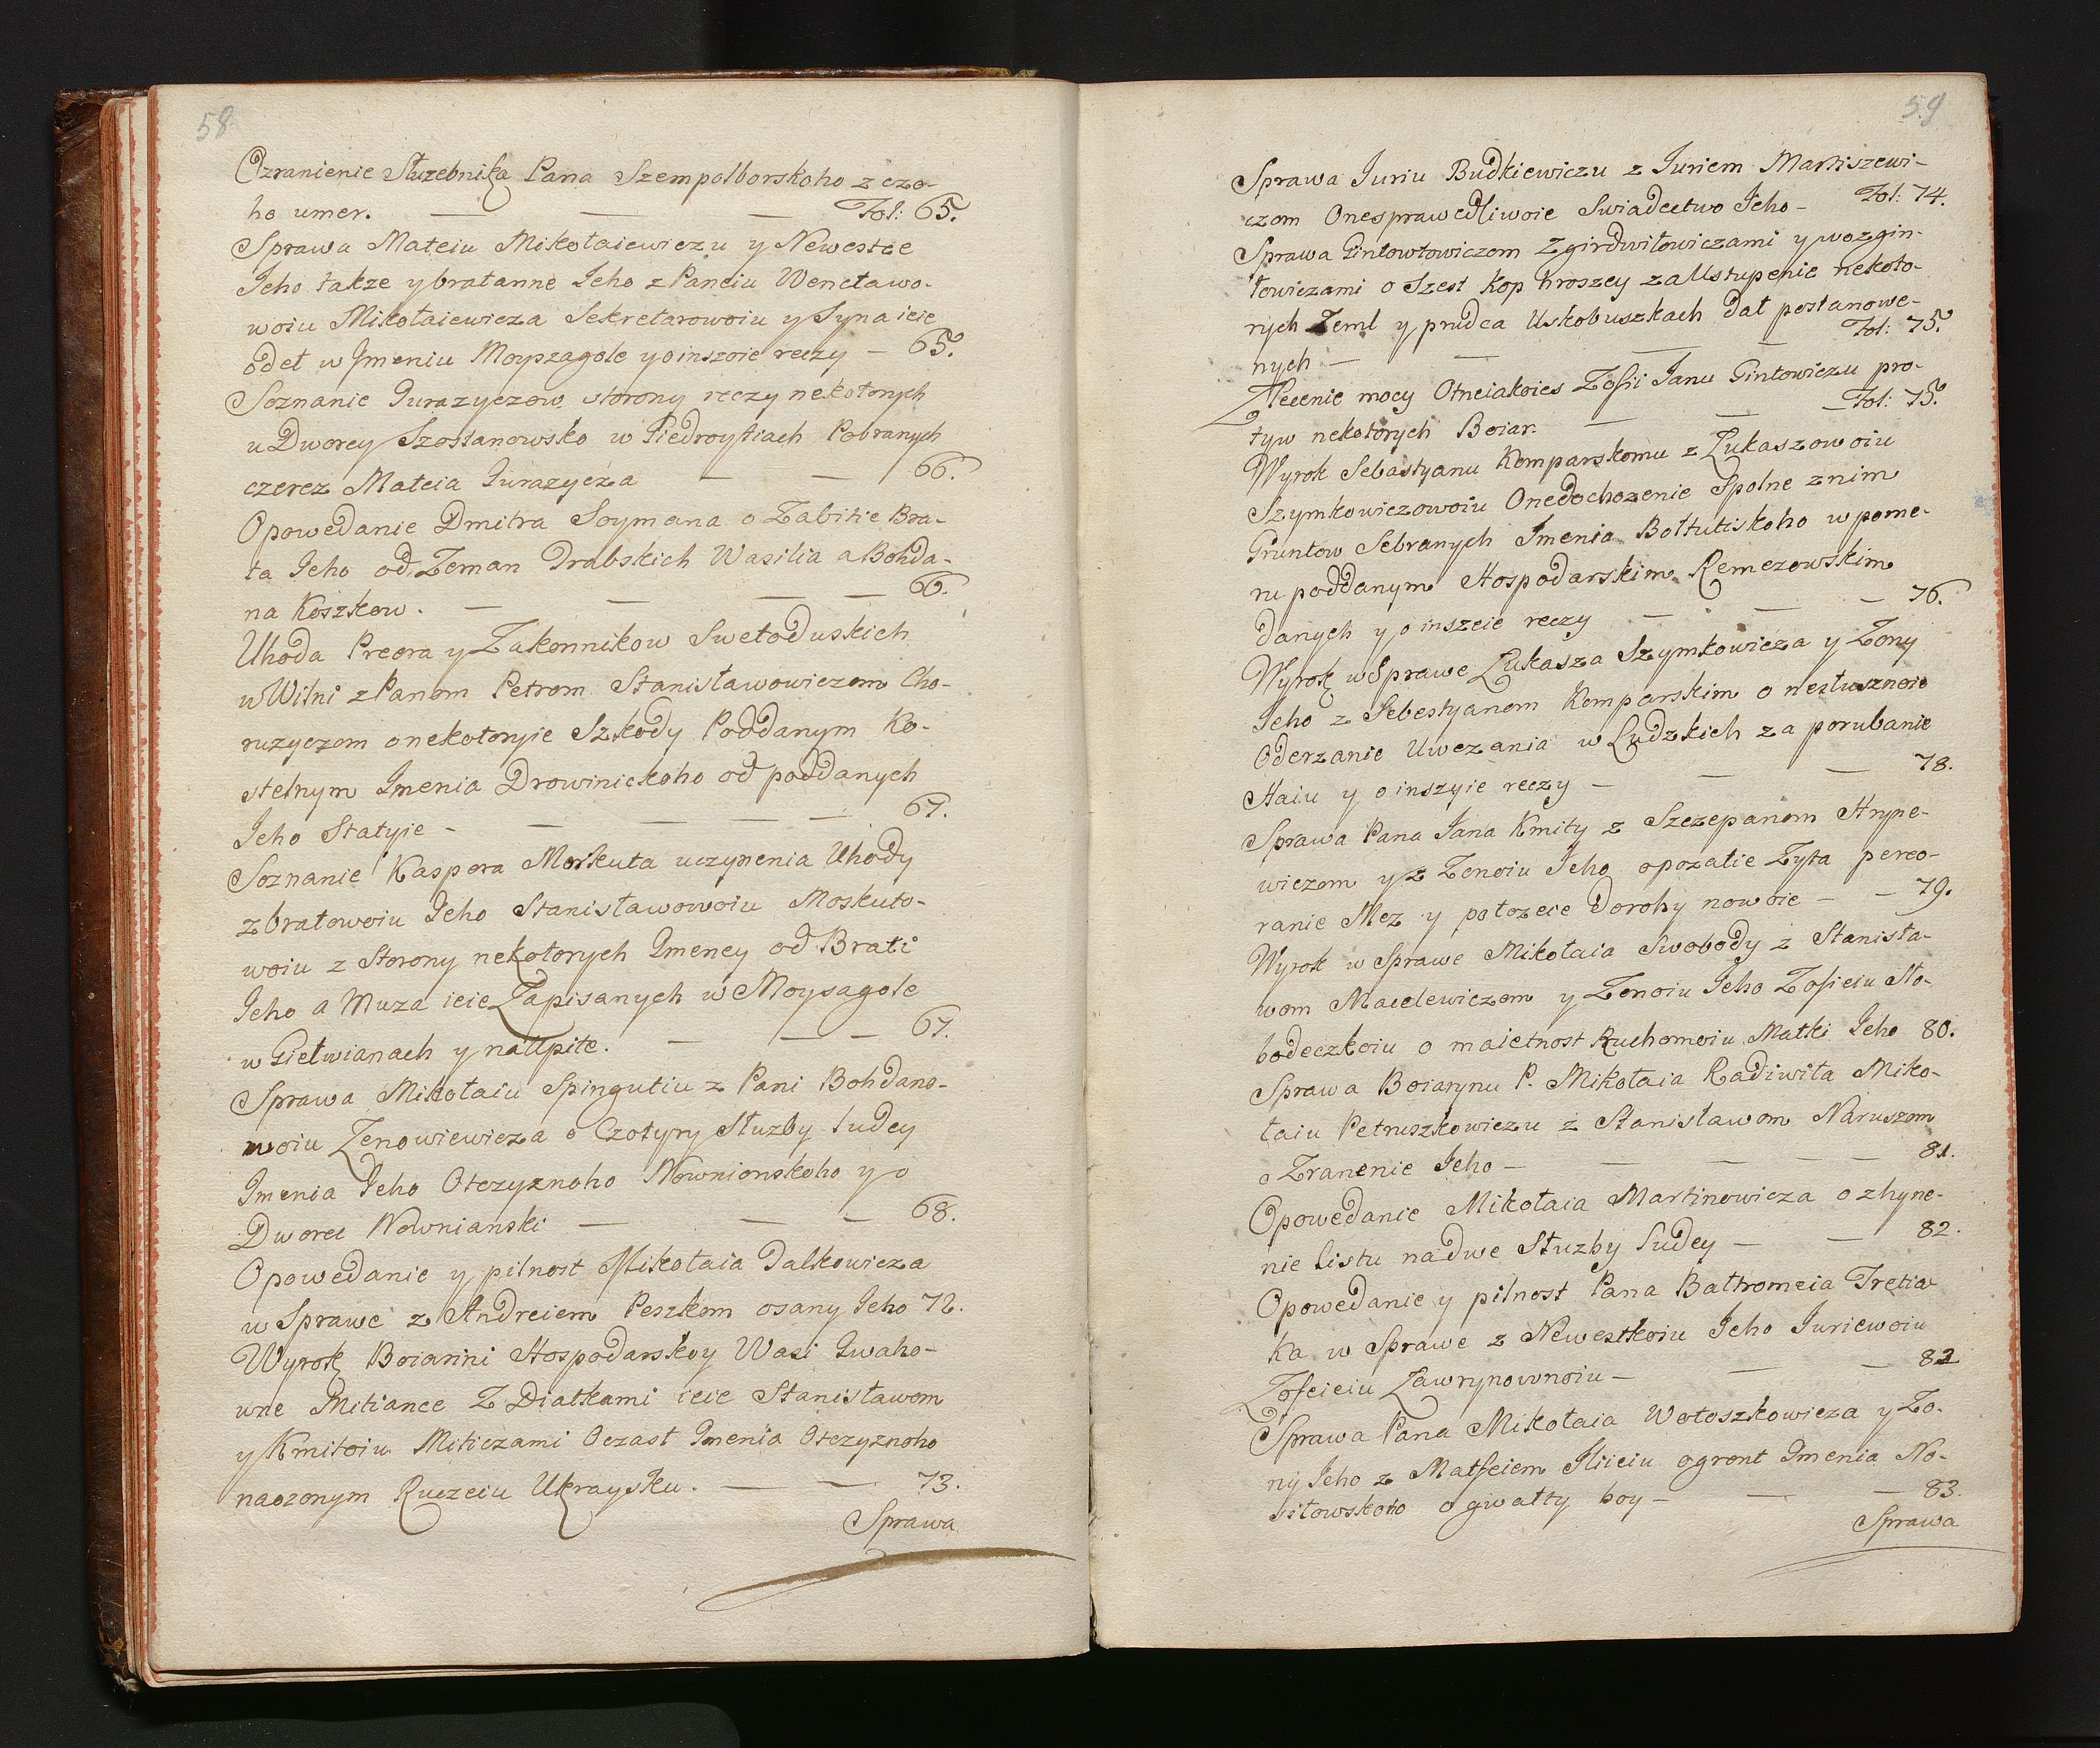 58
Ozranienie Służebnika Pana Szempolborskoho z czo-
ho umer. — — — Fol: 65.
Sprawa Mateiu Mikołaiewiczu y Newestce
Jeho także y bratanne Jeho z Paneiu Wencławo-
woiu Mikołaiewicza Sekretarowoiu y Syna ieie
odeł w Jmeniu Moyszagole y o inszoie reczy — 65.
Soznanie Jurazyczow storony reczy nekotorych
u Dworcy Szostanowsko w Giedroytiach Pobranych
czerez Mateia Jurazycza — — 66.
Opowedanie Dmitra Soymana o Zabitie Bra-
ta Jeho od Zeman Drabskich Wasilia a Bohda-
na Koszkow. — — — — 66.
Uhoda Preora y Zakonnikow Swetoduskich
w Wilni z Panom Petrom Stanisławowiczom Cho-
ruzyczom o nekotoryie Szkody Poddanym Ko-
stelnym Jmenia Drowinickoho od poddanych
Jeho Statyie - — — — — 67.
Soznanie Kaspera Moskuta uczynenia Uhody
z bratowoiu Jeho Stanisławowoiu Moskuto-
woiu z Storony nekotorych Jmeney od Brati
Jeho a Muza ieie Zapisanych w Moysagole
w Gietwianach y na Upite. — — — 67.
Sprawa Mikołaiu Spingutiu z Pani Bohdano-
woiu Zenowiewicza o Czotyry Służby Ludey
Jmenia Jeho Otczyznoho Nownionskoho y o
Dworec Nownianski — — — 68.
Opowedanie y pilnost Mikołaia Dalkowicza
w Sprawe z Andreiem Peszkom osany Jeho 72.
Wyrok Boiarini Hospodarskoy Wasi Jwaho-
wne Mitiance Z Diatkami ieie Stanisławom
y Kmitoiu Miticzami Oczast Jmenia Otczyznoho
naozonym Ruczeiu Ukraysku. — — 73.
Sprawa
59
Sprawa Juriu Budkiewiczu z Juriem Martiszewi-
czom Onesprawedliwoie Swiadectwo Jeho - Fol: 74.
Sprawa Gintowtowiczom Zgirdwiłowiczami y wozgin-
towiczami o Szest Kop hroszey za Ustupenie nekoto-
rych Zeml y prudca Uskobuszkach dał postanowe-
nych — — — — Fol: 75.
Zlecenie mocy Otneiakoies Zofii Janu Gintowiczu pro-
tyw nekotorych Boiar. — — — Fol: 75.
Wyrok Sebastyanu Komparskomu z Łukaszowoiu
Szymkowiczowoiu Onedochozenie Spolne z nim
Gruntow Sebranych Jmenia Bołtutiskoho w pome-
nu poddanym Hospodarskim Remezowskim
danych y o inszeie reczy — — — 76.
Wyrok w Sprawe Łukasza Szymkowicza y Zony
Jeho z Sebestyanom Komparskim o nesłusznoie
Oderzanie Uwezania w Ludzkich za porubanie
Haiu y o inszyie reczy — — — 78.
Sprawa Pana Jana Kmity z Szczepanom Hryne-
wiczom y z Zonoiu Jeho o pozatie Zyta pereo-
ranie Mez y połozeie dorohy nowoie — — 79.
Wyrok w Sprawe Mikołaia Swobody z Stanisła-
wom Macelewiczom y Zonoiu Jeho Zofieiu Sło-
bodeczkoiu o maietnost Ruchomoiu Matki Jeho 80.
Sprawa Boiarynu P. Mikołaia Radiwiła Miko-
łaiu Petruszkowiczu z Stanisławom Naruszom
o Zranenie Jeho — — — — — 81.
Opowedanie Mikołaia Martinowicza o zhyne-
nie listu na dwe Służby Ludey — — 82.
Opowedanie y pilnost Pana Bałtromeia Tretia-
ka w Sprawe z Newestkoiu Jeho Juriewoiu
Zofieiu Ławrynownoiu — — — 82
Sprawa Pana Mikołaia Wołoszkowicza y Zo-
ny Jeho z Matfeiem Iliieiu o gront Jmenia No-
siłowskoho o gwałty boy — — — 83.
Sprawa